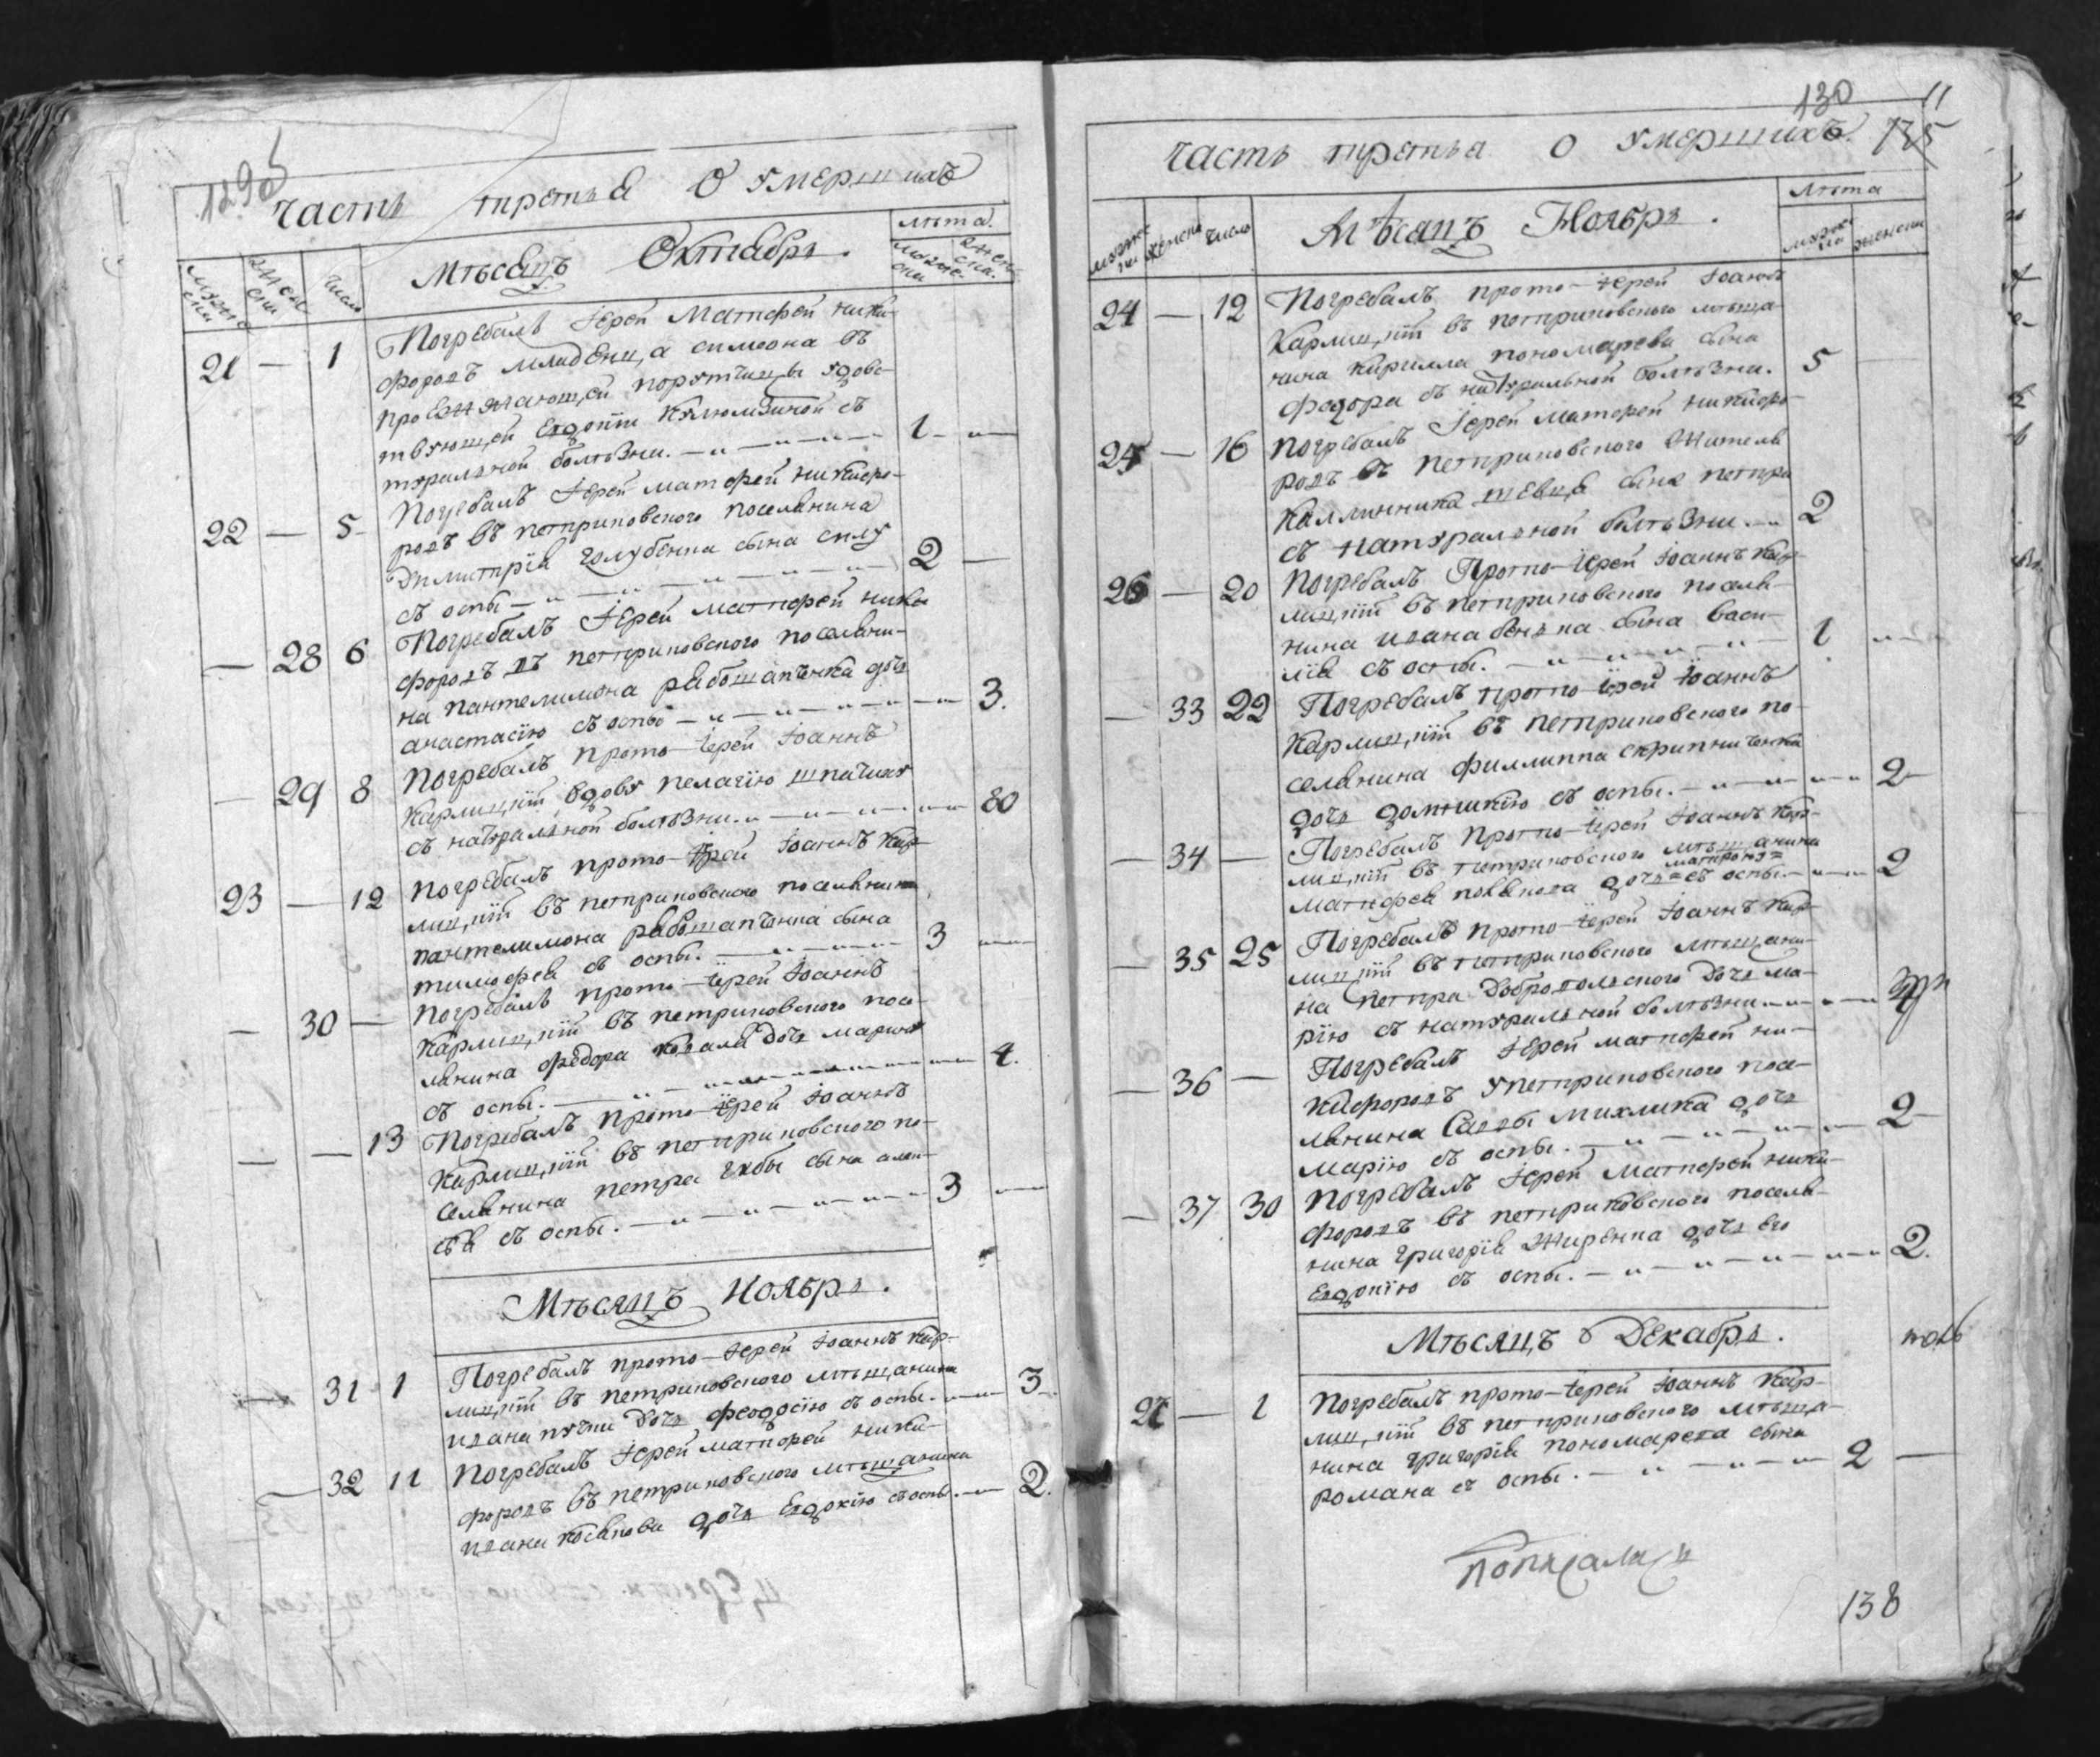 129об
часть третья О умершихъ
лѣта.
мужес ски
женс ски
число
Мѣсецъ Октябрь.
мужес ски
женс ски.
21 — 1 Погребалъ Іерей Матфей ники-
форовъ младенца симеона въ
тѣ порутчицы удовс-
твующей Евдокіи съ
туральной болѣзни. 1
22 — 5 Погребалъ Іерей матфей никифо-
ровъ въ петриковского поселянина
Димитрія голубенка сына силу
съ оспы 2 —
— 28 6 Погребалъ Іерей матфей ники
форовъ въ петриковского поселяни-
на пантелимона работапенка дочь
анастасію съ оспы 3.
— 29 8 Погребалъ прото-іерей Іоаннъ
Карлицкій вдову пелагію шпачиху
съ натуральной болѣзни. 80
23 — 12 Погребалъ прото-іерей Іоаннъ Кар-
лицкій въ петриковского поселянина
пантелимона работапенка сына
тимофея съ оспы. 3
— 30 — Погребалъ прото-іерей Іоаннъ
Карлицкій въ петриковского посе-
лянина федора коваля дочь марию
съ оспы. 4.
— — 13 Погребалъ прото-іерей Іоаннъ
Карлицкій въ петриковского по-
селянина петра губы сына алек-
сѣя съ оспы. 3
Мѣсяцъ Ноябрь.
— 31 1 Погребалъ прото-іерей Іоаннъ Кар-
лицкій въ петриковского мѣщанина
ивана дочь феодосію съ оспы. 3
— 32 11 Погребалъ Іерей матфей ники-
форовъ въ петриковского мѣщанина
ивана косякова дочь Евдокію съ оспы. 2.
130
135
11
часть третья О умершихъ.
Лѣта
мужес ки
женски
число
Мѣсяцъ Ноябрь.
мужес ки
женски
24 — 12 Погребалъ прото-іерей Іоаннъ
Карлицкій въ петриковского мѣща-
нина Кирилла пономарева сына
федора съ натуральной болѣзни. 5
25 — 16 погребалъ Іерей матфей никифо-
ровъ въ петриковского Жителя
Каллинника шевца сына петра
съ натуральной болѣзни 2
26 — 20 Погребалъ Прото-іерей Іоаннъ Кар-
лицкій въ петриковского поселя-
нина ивана сына васи-
лія съ оспы. 1
— 33 22 Погребалъ прото-іерей Іоаннъ
Карлицкій въ петриковского по-
селянина филлиппа скрипниченка
дочь домникію съ оспы. 2
— 34 — Погребалъ Прото-іерей Іоаннъ Кар-
лицкій въ петриковского мѣщанина
матфея дочь = матрону = съ оспы. 2
— 35 25 Погребалъ прото-іерей Іоаннъ Кар-
лицкій въ петриковского мѣщани-
на петра Добровольского дочь ма-
рію съ натуральной болѣзни
— 36 — Погребалъ Іерей матфей ни-
кифоровъ упетриковского посе-
лянина Саввы михлика дочь
марію съ оспы. 2
— 37 30 Погребалъ Іерей матфей ники-
форовъ въ петриковского поселя-
нина Григорія Жиренка дочь Его
Евдокію съ оспы. 2.
Мѣсяцъ Декабрь.
27 — 1 Погребалъ прото-іерей Іоаннъ Кар-
лицкій въ петриковского мѣща-
нина Григорія пономарева сына
романа съ оспы. 2 —
138